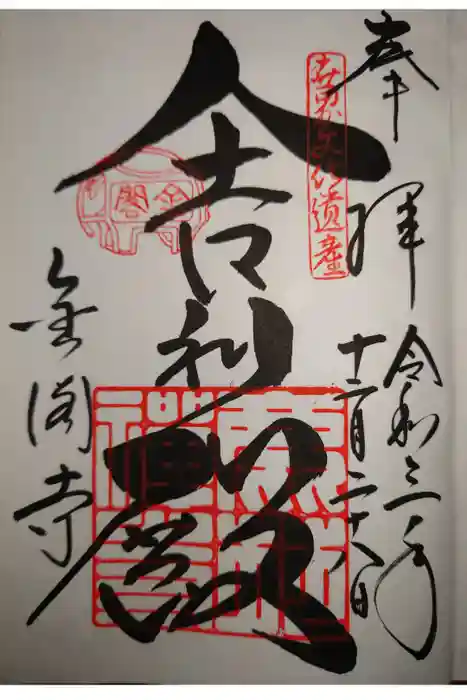 奉拝
令和三年
十二月二十八日
世界文化遺産
舎利殿
金閣
金閣寺